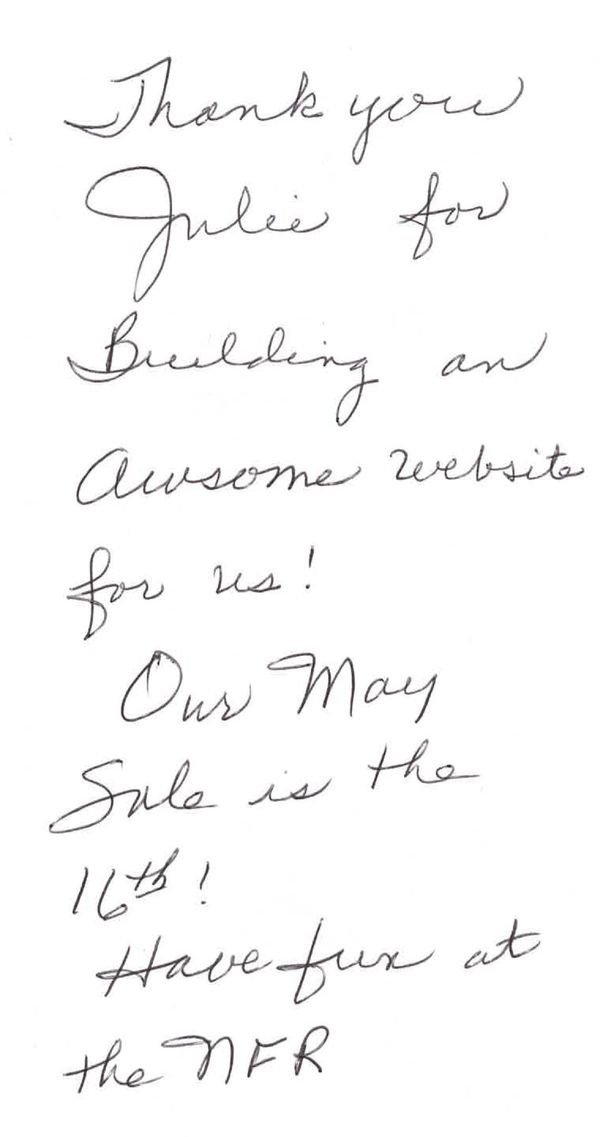 Thank you
Julie for
Building an
Awsome website
for us!
Our May
Sale is the
16th!
Have fun at
the NFR